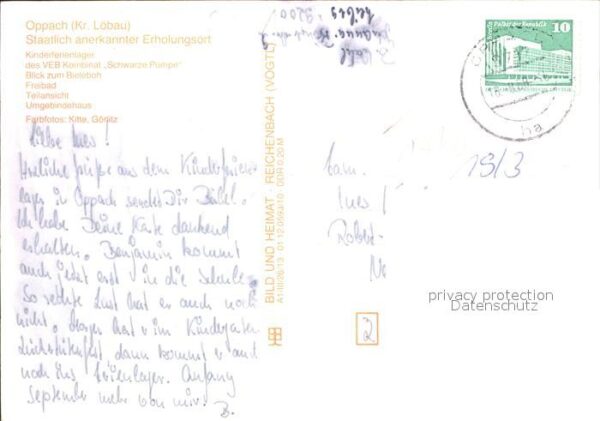 Oppach (Kr. Löbau)
Staatlich anerkannter Erholungsort
Kinderferienlager
des VEB Kombinat „Schwarze Pumpe"
Blick zum Bieleboh
Freibad
Teilansicht
Umgebindehaus
Farbfotos: Kitte, Görlitz
Liebe Ines!
Herzliche Grüße aus dem Kinderferien
lager in Oppach sendet Dir Bärbel.
Ich habe Deine Karte dankend
erhalten. Benjamin kommt
auch jetzt erst in die Schule.
So rechte Lust hat er auch noch
nicht. Morgen hat er im Kindergarten
Zuckertütenfest dann kommt er auch
noch ins Ferienlager. Anfang
September mehr von mir.
B.
BILD UND HEIMAT REICHENBACH (VOGTL)
A1/III/26/13 01 12 0593/10 DDR 0,20 M
3200
Palast der Republik
10
Fam.
Ines
Robert-
1913
2
privacy protection
Datenschutz